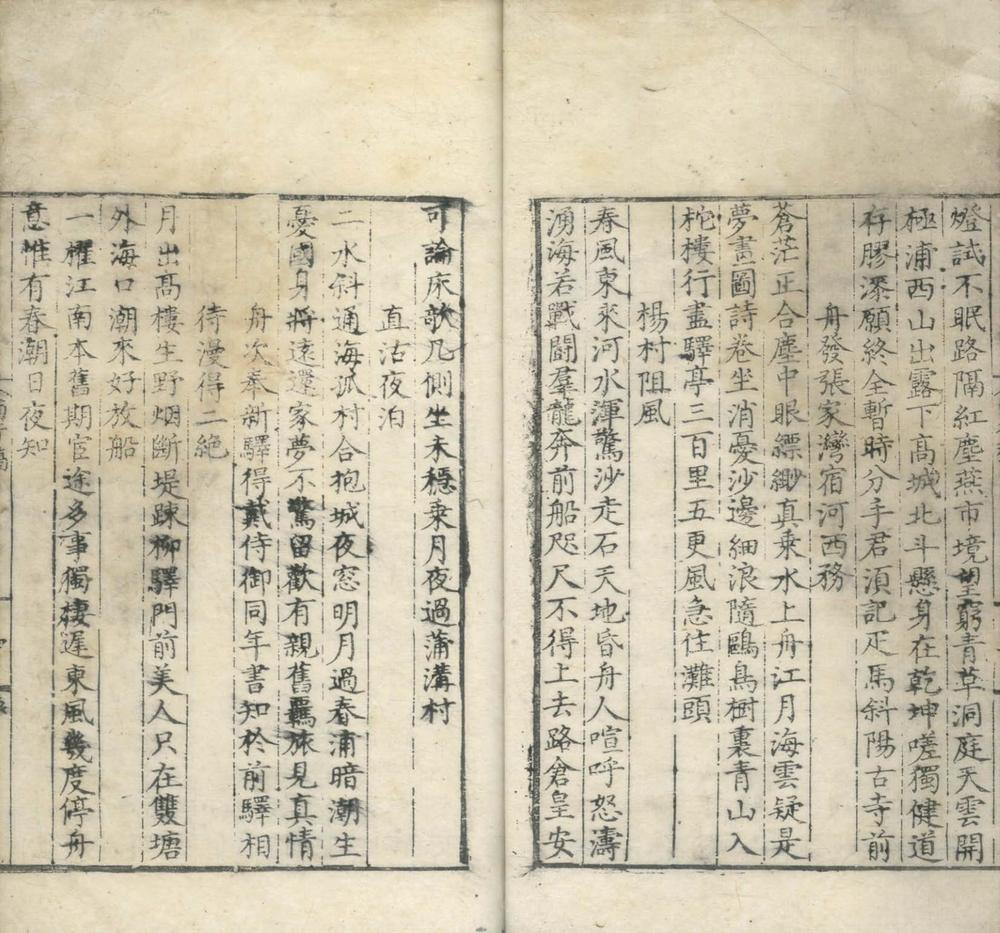 燈試不眠路隔紅塵燕市境望窮青草洞庭天雲開
極浦西山出露下高城北斗懸身在乾坤嗟獨健道
存膠漆願終全暫時分手君須記疋馬斜陽古寺前
舟發張家灣宿河西務
蒼茫正合塵中眼縹緲真乗水上舟江月海雲疑是
夢畫圖詩卷坐消憂沙邊細浪隨鷗鳥樹裏青山入
柁樓行盡驛亭三百里五更風急住灘頭
楊村阻風
春風東來河水渾驚沙走石天地昏舟人喧呼怒濤
湧海若戰闘羣龍奔前船咫尺不得上去路倉皇安
可論床欹几側坐未穏乗月夜過蒲溝村
直沽夜泊
二水斜通海孤村合抱城夜窓明月過春浦暗潮生
憂國身將遠還家夢不驚留歡有親舊羈旅見真情
舟次奉新驛得戴侍御同年書知於前驛相
待漫得二絶
月出高樓生野烟斷堤踈柳驛門前美人只在雙塘
外海口潮來好放船
一櫂江南本舊期宦途多事獨棲遲東風幾度停舟
意惟有春潮日夜知